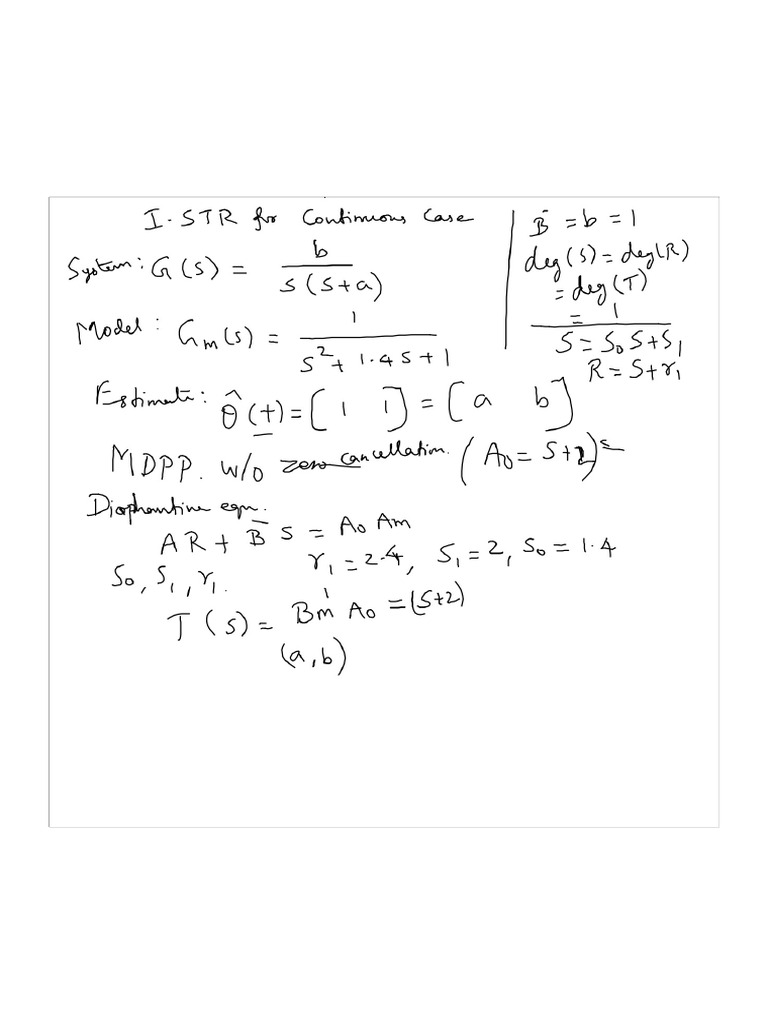 I-STR for Continuous Case
System: G(s) = b / s(s+a)
Model: Gm(s) = 1 / s² + 1.4s + 1
Estimate: θ̂(t) = [1 1] = [a b]
MDPP. w/o zero cancellation. (A₀ = s+2)
Diophantine eqn.
AR + B⁻ S = A₀ Am
S₀, S₁, r₁. r₁ = 2.4, S₁ = 2, S₀ = 1.4
T(s) = Bm' A₀ = (s+2)
(a, b)
B⁻ = b = 1
deg(S) = deg(R)
= deg(T)
= 1
S = S₀ s + S₁
R = s + r₁